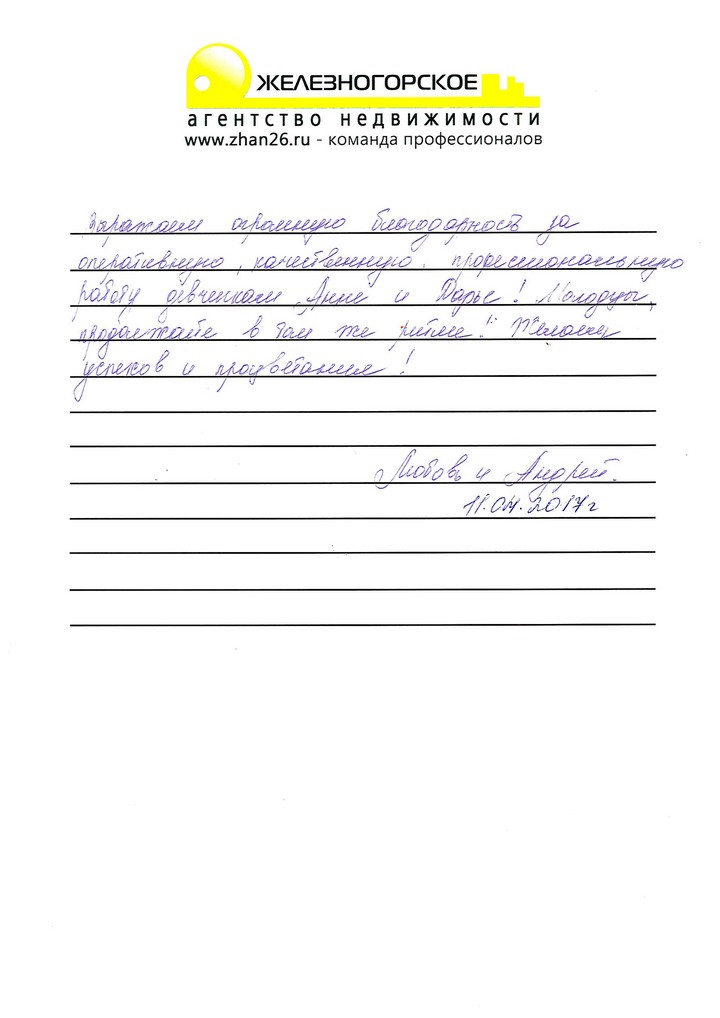 ЖЕЛЕЗНОГОРСКОЕ
агентство недвижимости
www.zhan26.ru - команда профессионалов
Выражаем огромную благодарность за
оперативную, качественную, профессиональную
работу девченкам Анне и Дарье! Молодцы,
продолжайте в том же ритме! Желаем
успехов и процветания!
Любовь и Андрей.
11.04.2017г